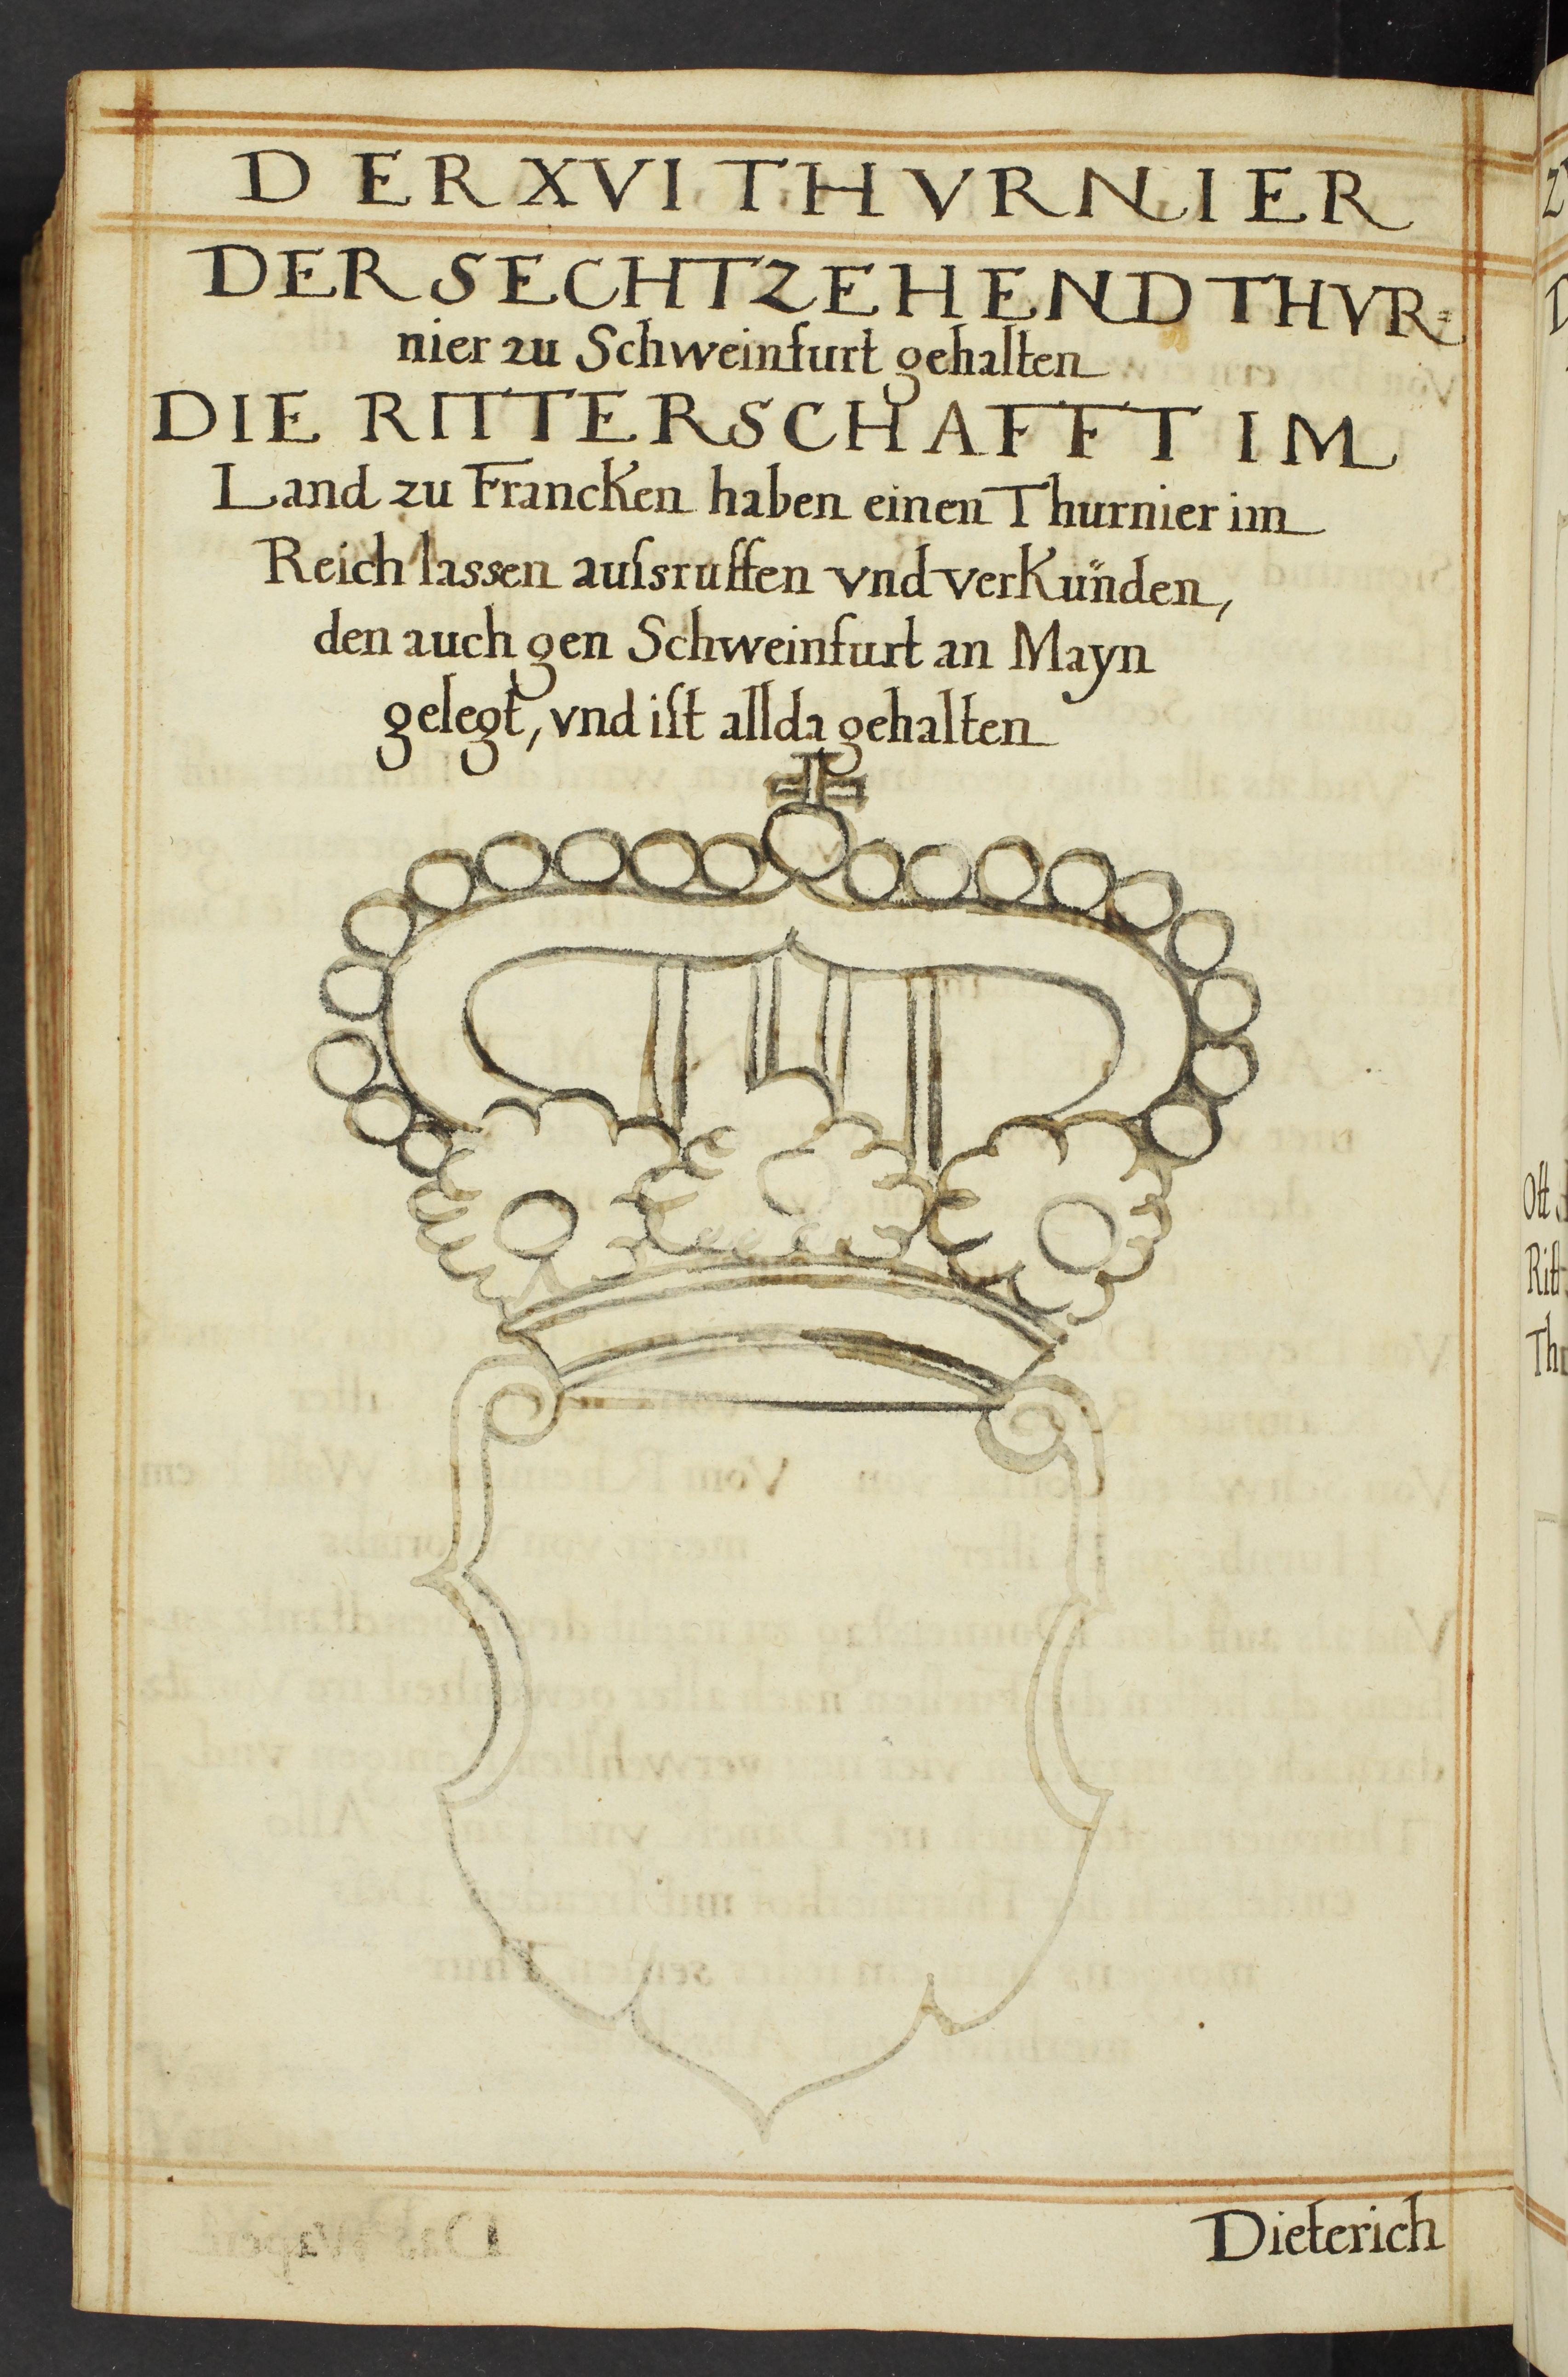 DER XVI THVRNIER
DER SECHTZEHEND THVR=
nier zu Schweinfurt gehalten
DIE RITTERSCHAFFT IM
Land zu Francken haben einen Thurnier im
Reich lassen aufsruffen vnd verkünden,
den auch gen Schweinfurt an Mayn
gelegt, vnd ist allda gehalten
Dieterich